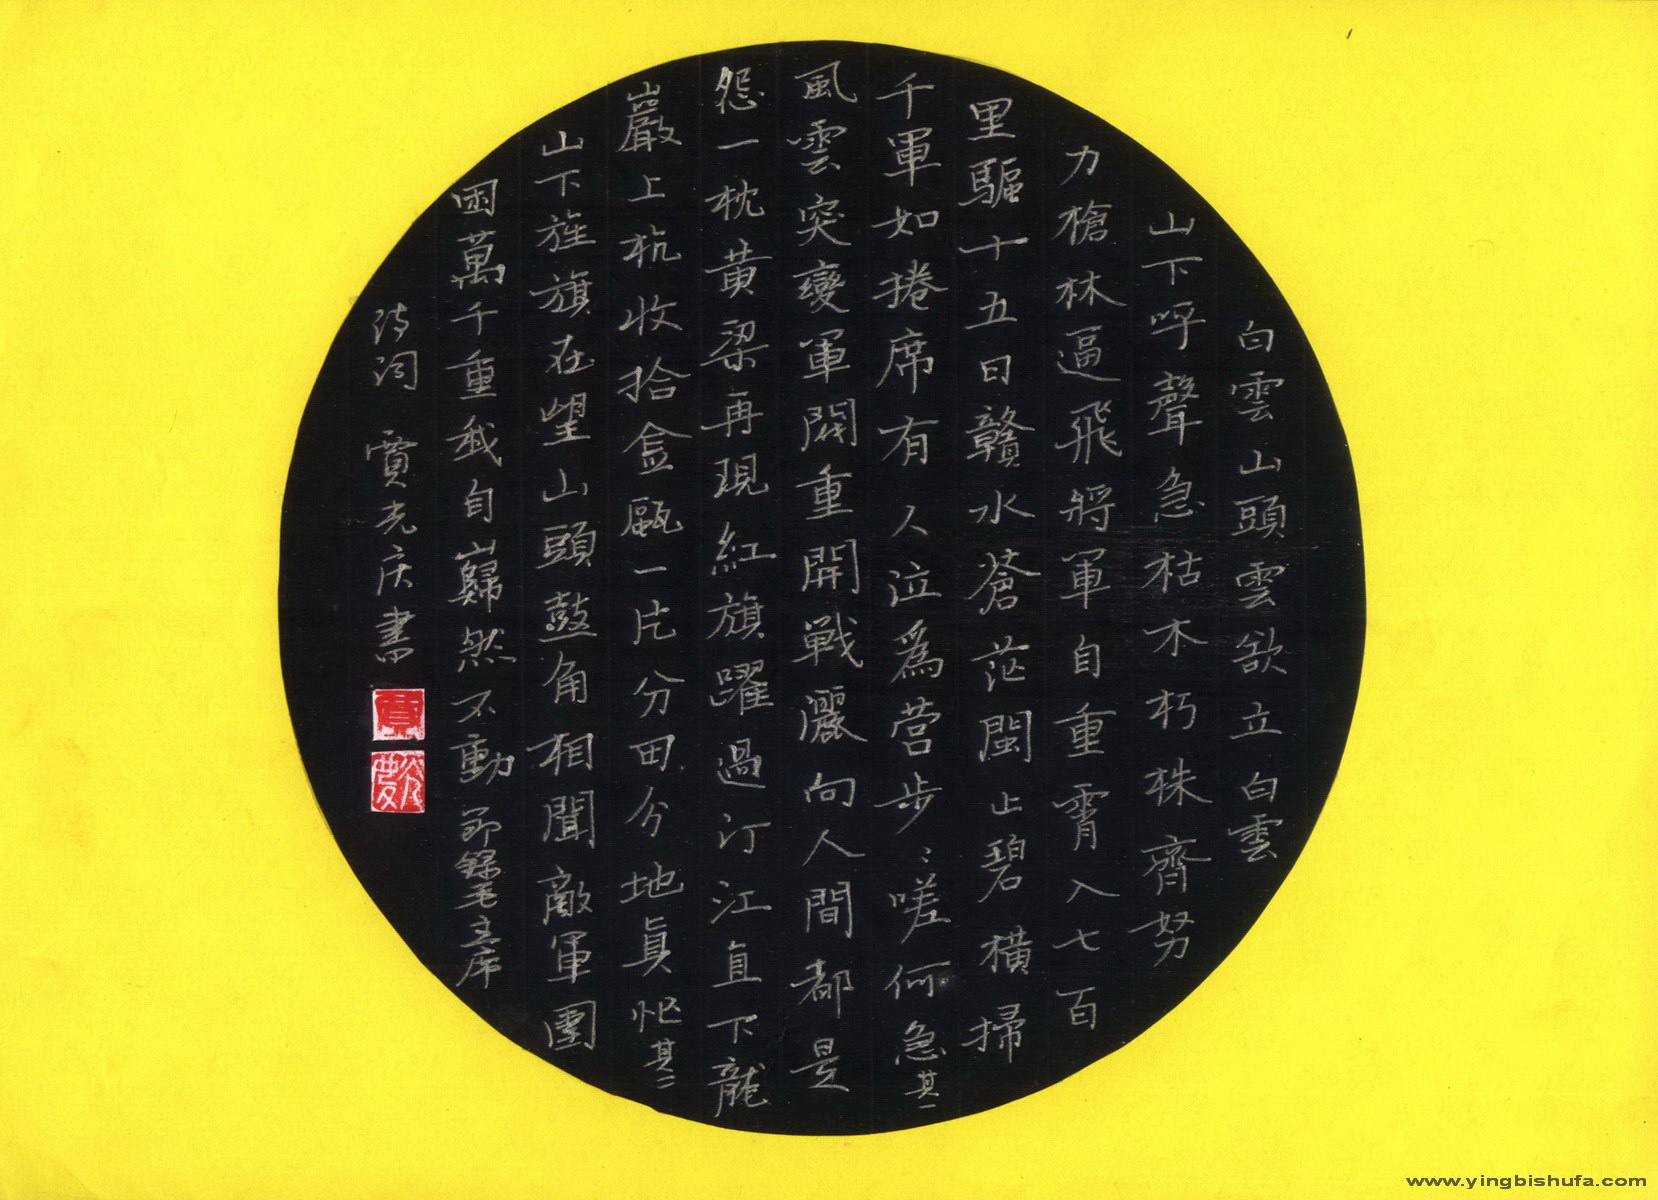 白雲山頭雲欲立白雲
山下呼聲急枯木朽株齊努
力槍林逼飛將軍自重霄入七百
里驅十五日贛水蒼茫閩山碧橫掃
千軍如捲席有人泣爲营步〻嗟何急其一
風雲突變軍閥重開戰灑向人間都是
怨一枕黄梁再現紅旗躍過汀江直下龍
巖上杭收拾金甌一片分田分地真忙其二
山下旌旗在望山頭鼓角相聞敵軍圍
困萬千重我自巋然不動節録毛主席
诗词 賈光庆書
www.yingbishufa.com